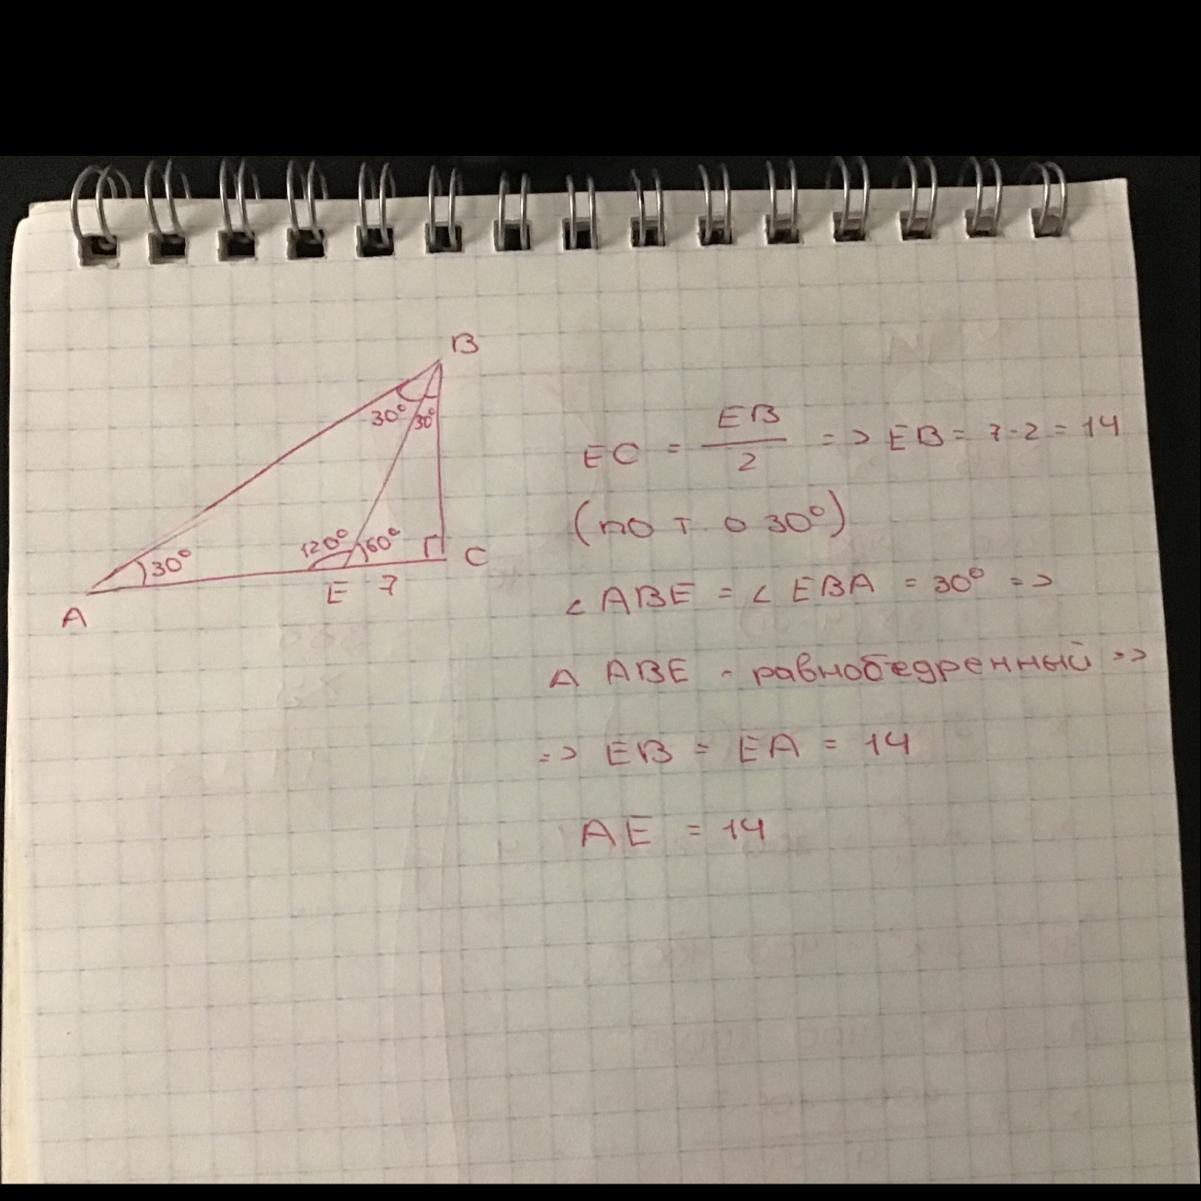 B
30° 30°
120° 60°
30°
A E 7 C
EC = EB/2 => EB = 7·2 = 14
(по т. о 30°)
∠ ABE = ∠ EBA = 30° =>
Δ ABE - равнобедренный =>
=> EB = EA = 14
AE = 14